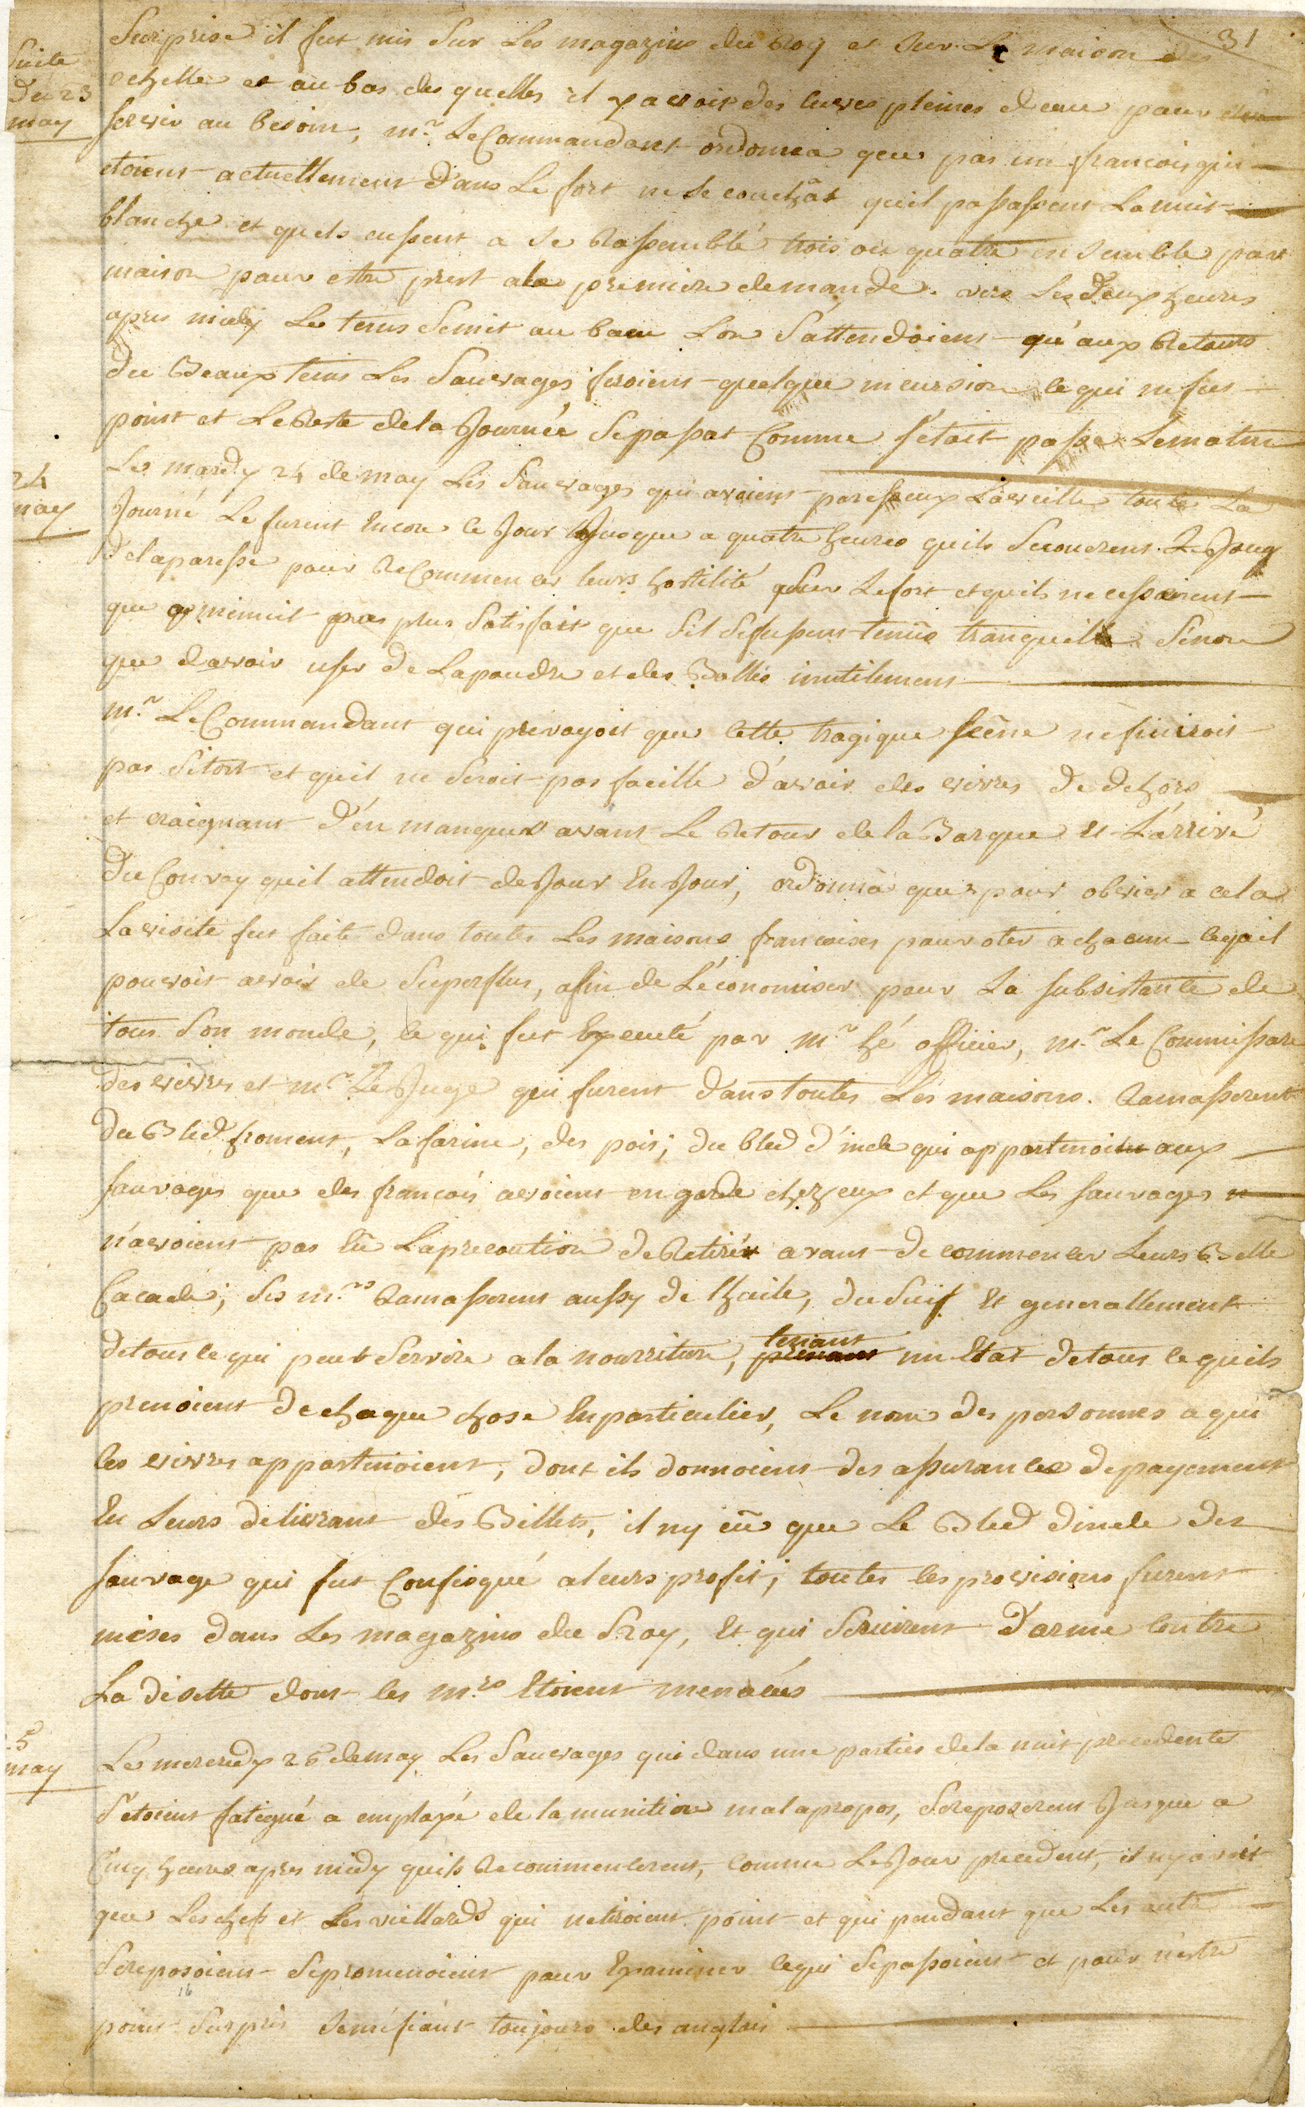 31
Suite
Du 23
may
Surprise il fut mis Sur Les magazins du Roy et Sur La maison des
echelle et au bas des quelles il y avoit des cuves pleines d'eau pour
servir au besoin, mr. Le Commandant ordonna que pas un françois qui
etoient actuellement dans Le fort ne se couchât quil passassent La nuit
blanche et quels eussent a se Rassemblé trois ou quatre ensemble par
maison pour estre prest a la premiere demande. vers Les deux heures
apres midy Le tems Se mit au beau L'on S'attendoient qu'aux Retours
du Beaux tems Les Sauvages feroient quelque incursion ce qui ne fut
point et Le Reste de la Journée Se passat Comme S'étoit passe Le matin
24
may
Le mardy 24 de may Les Sauvages qui avoient paresseux La veille toute La
Journé Le furent Encore ce Jour Jusque a quatre heures quils Secouerent Le Joug
de la paresse pour ReCommencer leurs hostilité sur Le fort et quils ne cesserent
que a minuit pas plus Satisfait que Sil Se fussent tenüs tranquille Sinon
que d'avoir user de La poudre et des Balles inutilement
mr. Le Commandant qui prevoyoit que Cette tragique scêne ne finiroit
pas Sitost et quil ne Seroit pas facille d'avoir des vivres de dehors
et craignant d'en manquer avant Le Retour de la Barque Et L'arrivé
Du Convoy quil attendoit de Jour En Jour, ordonna que pour obvier a cela
La visite fut faite dans toutes Les maisons francoises pour oter a chacun ce quil
pouvoit avoir de Superflus, afin de L'économiser pour La subsistance de
tous Son monde, ce qui fut Executé par mr. hé officier, mr. Le Commissaire
des vivres et mr. Le Juge qui furent dans toutes Les maisons. Ramasserent
du Bled froment, La farine, des pois, du bled d'inde qui appartenoient aux
sauvages que des françois avoient en garde chez eux et que Les sauvages
n'avoient pas eû La precaution de Retirér avant de commencer Leurs Belle
Cacade; Ses mrs. Ramasserent aussy de Lhuile, du Suif Et generallement
de tous ce qui peut Servire a la nourriture, tenant un Etat de tous ce quils
prenoient de chaque chose En particulier, Le nom des personnes a qui
les vivres appartenoient, dont ils donnoient des assurances de payement
En Leurs delivrant des Billets, il ny eû que Le Bled dinde des
sauvage qui fut Confisqué a leurs profit; toutes les provisions furent
mises dans Les magazins du Roy, Et qui Servirent D'arme Contre
La disette dont les mrs. Etoient menacés
5
may
Le mercredy 25 de may Les Sauvages qui dans une parties de la nuit precedente
S'etoient fatigué a employé de la munition mal apropos, Se reposerent Jusque a
Cinq heures apres midy quils Recommencerent, comme Le Jour precedent, il ny avoit
que Les chefs et Les viellards qui ne tiroient point et qui pendant que Les autre
Se reposoient Se promenoient pour Examiner ce qui Se passoient et pour n'estre
point Surpris Se méfiant toujours des anglais
16